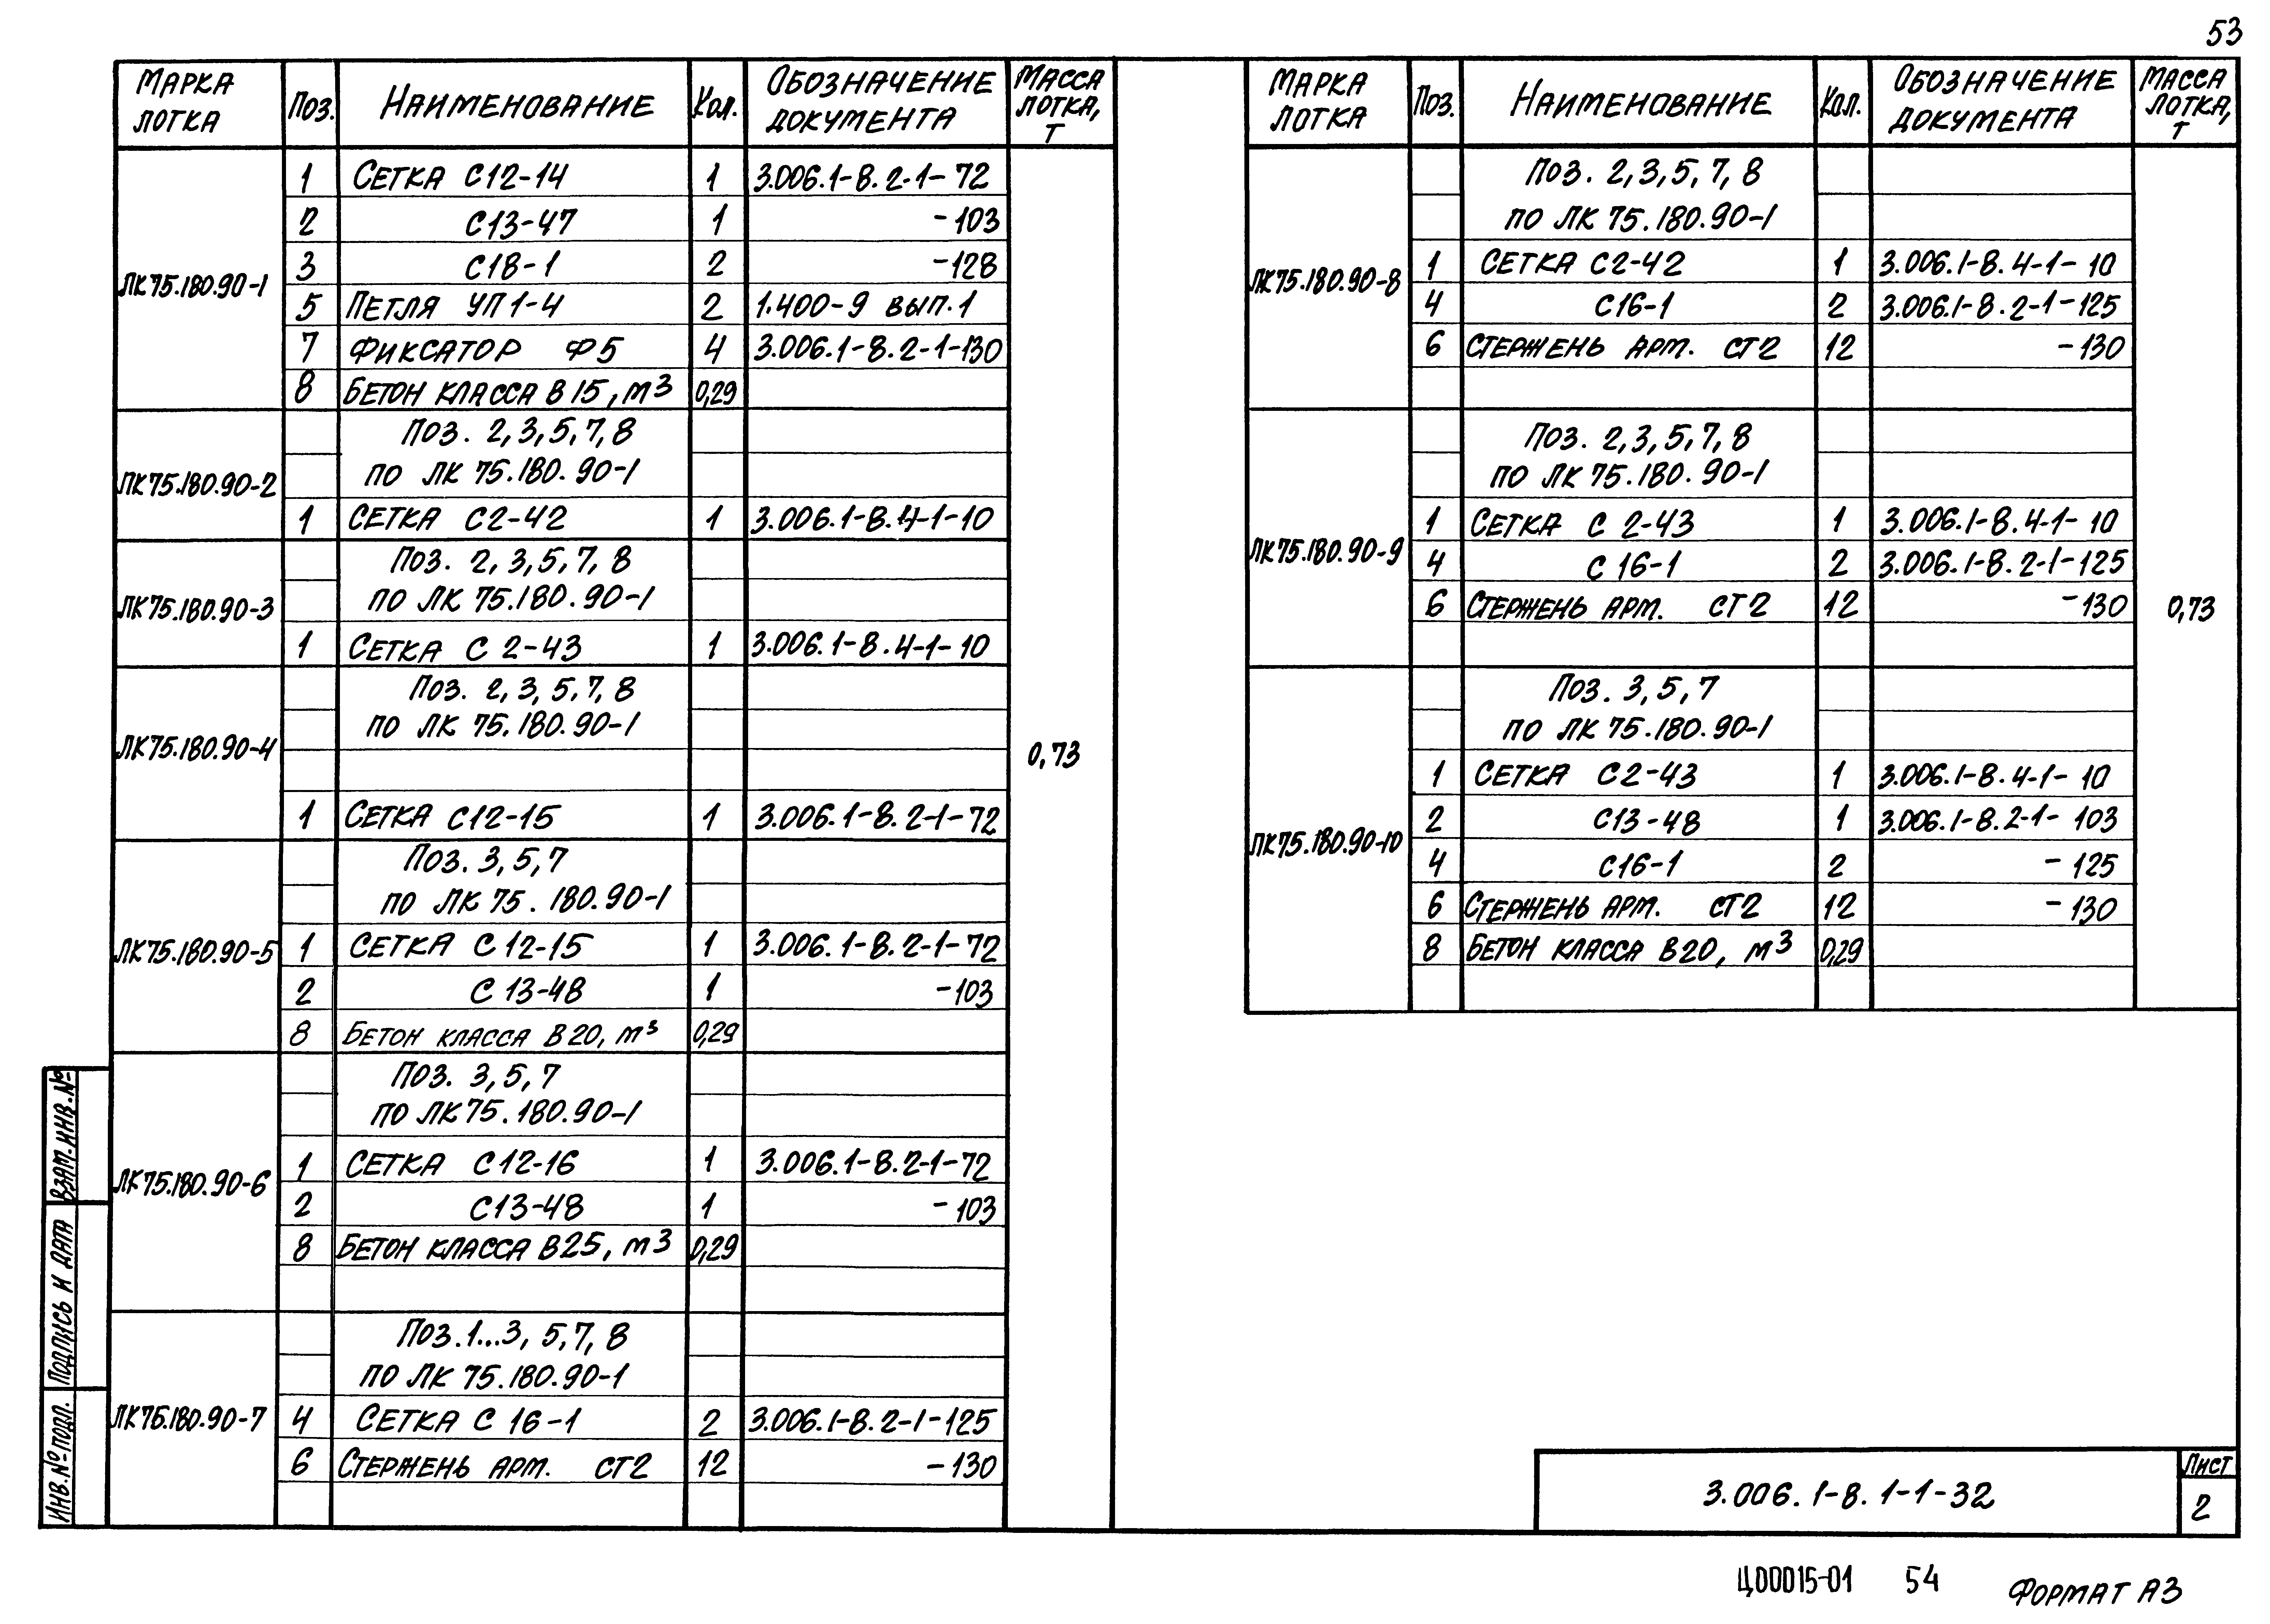 53
МАРКА ЛОТКА | ПОЗ. | НАИМЕНОВАНИЕ | КОЛ. | ОБОЗНАЧЕНИЕ ДОКУМЕНТА | МАССА ЛОТКА, Т
ЛК75.180.90-1
1 СЕТКА С12-14 1 3.006.1-8.2-1-72
2 С13-47 1 -103
3 С18-1 2 -128
5 ПЕТЛЯ УП1-4 2 1.400-9 ВЫП.1
7 ФИКСАТОР Ф5 4 3.006.1-8.2-1-130
8 БЕТОН КЛАССА В15, М3 0,29
ЛК75.180.90-2
ПОЗ. 2,3,5,7,8
ПО ЛК 75.180.90-1
1 СЕТКА С2-42 1 3.006.1-8.4-1-10
ЛК75.180.90-3
ПОЗ. 2,3,5,7,8
ПО ЛК 75.180.90-1
1 СЕТКА С 2-43 1 3.006.1-8.4-1-10
ЛК75.180.90-4
ПОЗ. 2,3,5,7,8
ПО ЛК 75.180.90-1
0,73
1 СЕТКА С12-15 1 3.006.1-8.2-1-72
ЛК75.180.90-5
ПОЗ. 3,5,7
ПО ЛК 75.180.90-1
1 СЕТКА С 12-15 1 3.006.1-8.2-1-72
2 С 13-48 1 -103
8 БЕТОН КЛАССА В20, М3 0,29
ЛК75.180.90-6
ПОЗ. 3,5,7
ПО ЛК75.180.90-1
1 СЕТКА С12-16 1 3.006.1-8.2-1-72
2 С13-48 1 -103
8 БЕТОН КЛАССА В25, М3 0,29
ЛК75.180.90-7
ПОЗ.1...3, 5,7,8
ПО ЛК 75.180.90-1
4 СЕТКА С 16-1 2 3.006.1-8.2-1-125
6 СТЕРЖЕНЬ АРМ. СТ2 12 -130
МАРКА ЛОТКА | ПОЗ. | НАИМЕНОВАНИЕ | КОЛ. | ОБОЗНАЧЕНИЕ ДОКУМЕНТА | МАССА ЛОТКА, Т
ЛК75.180.90-8
ПОЗ. 2,3,5,7,8
ПО ЛК 75.180.90-1
1 СЕТКА С2-42 1 3.006.1-8.4-1-10
4 С16-1 2 3.006.1-8.2-1-125
6 СТЕРЖЕНЬ АРМ. СТ2 12 -130
ЛК75.180.90-9
ПОЗ. 2,3,5,7,8
ПО ЛК 75.180.90-1
1 СЕТКА С 2-43 1 3.006.1-8.4-1-10
4 С 16-1 2 3.006.1-8.2-1-125
6 СТЕРЖЕНЬ АРМ. СТ2 12 -130
0,73
ЛК75.180.90-10
ПОЗ. 3,5,7
ПО ЛК 75.180.90-1
1 СЕТКА С2-43 1 3.006.1-8.4-1-10
2 С13-48 1 3.006.1-8.2-1-103
4 С16-1 2 -125
6 СТЕРЖЕНЬ АРМ. СТ2 12 -130
8 БЕТОН КЛАССА В20, М3 0,29
ВЗАМ.ИНВ.№
ПОДПИСЬ И ДАТА
ИНВ.№ПОДЛ.
3.006.1-8.1-1-32
ЛИСТ
2
Ц00015-01 54
ФОРМАТ А3